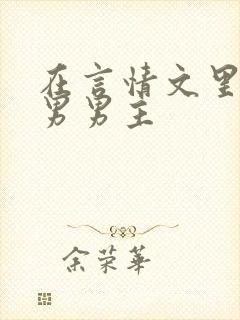 在言情文里
男男主
余荣华